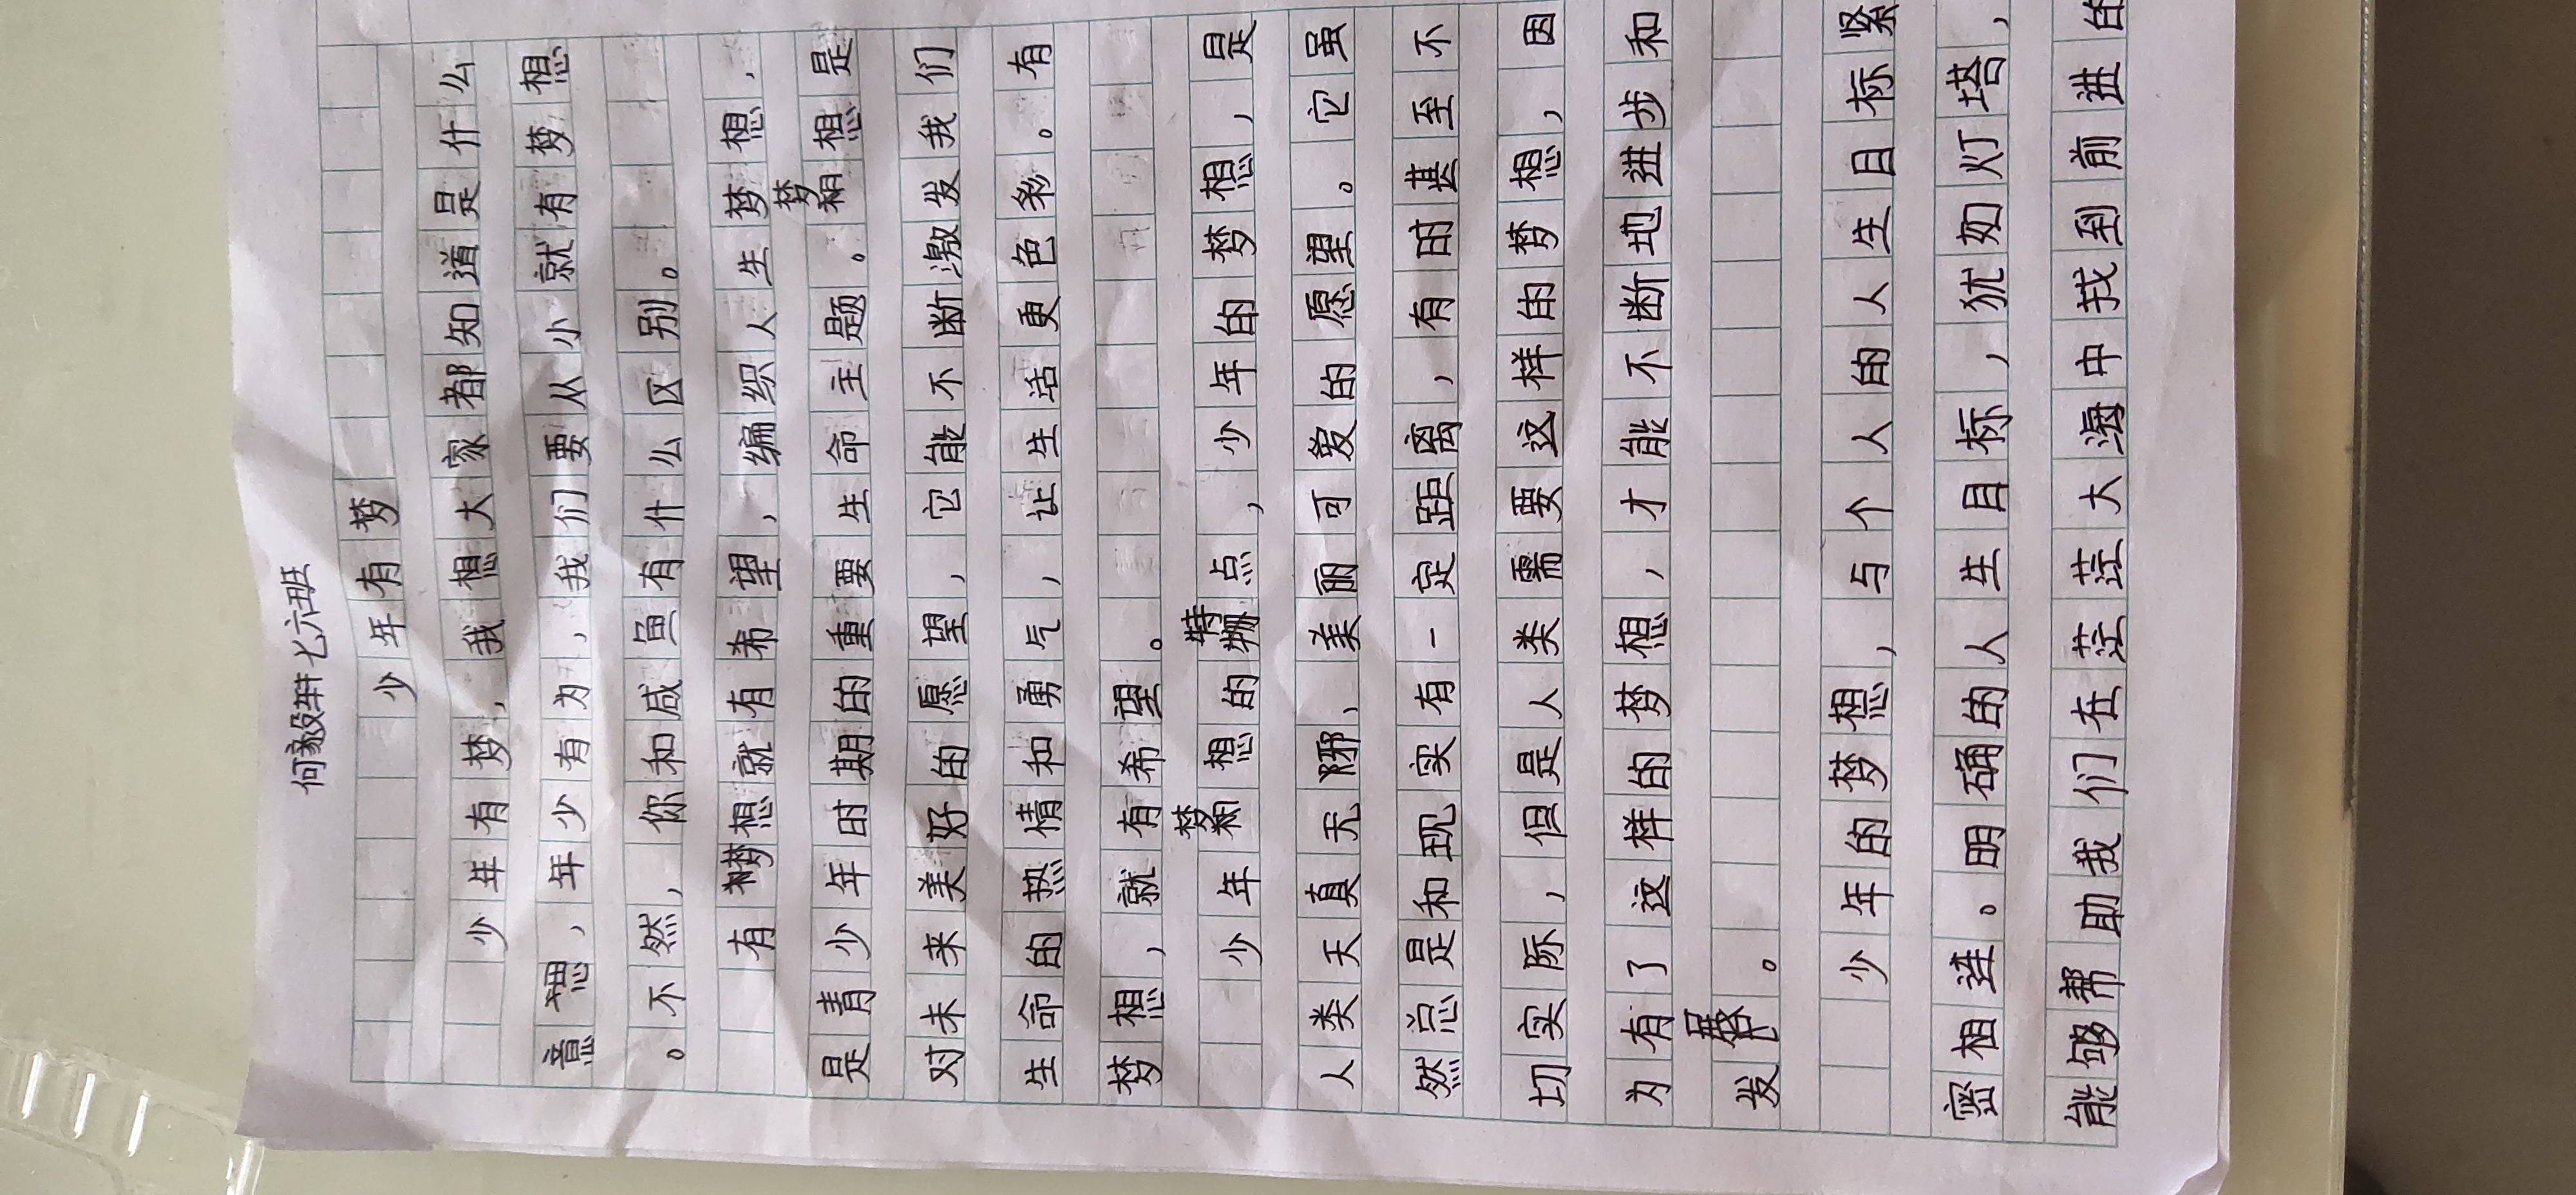 何毅群七六班
少年有梦
少年有梦，我想大家都知道是什么
意思，年少有为，我们要从小就有梦想
。不然，你和咸鱼有什么区别。
有梦想就有希望，编织人生梦想，
是青少年时期的重要生命主题。梦想是
对未来美好的愿望，它能不断激发我们
生命的热情和勇气，让生活更色彩。有
梦想，就有希望。
少年梦想的特点，少年的梦想，是
人类天真无邪、美丽可爱的愿望。它虽
然总是和现实有一定距离，有时甚至不
切实际，但是人类需要这样的梦想，因
为有了这样的梦想，才能不断地进步和
发展。
少年的梦想，与个人的人生目标紧
密相连。明确的人生目标，犹如灯塔，
能够帮助我们在茫茫大海中找到前进的